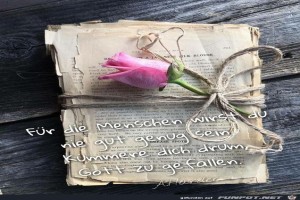 Für die Menschen wirst du
nie gut genug sein.
Kümmere dich drum,
Gott zu gefallen.
FUNPOT.NET